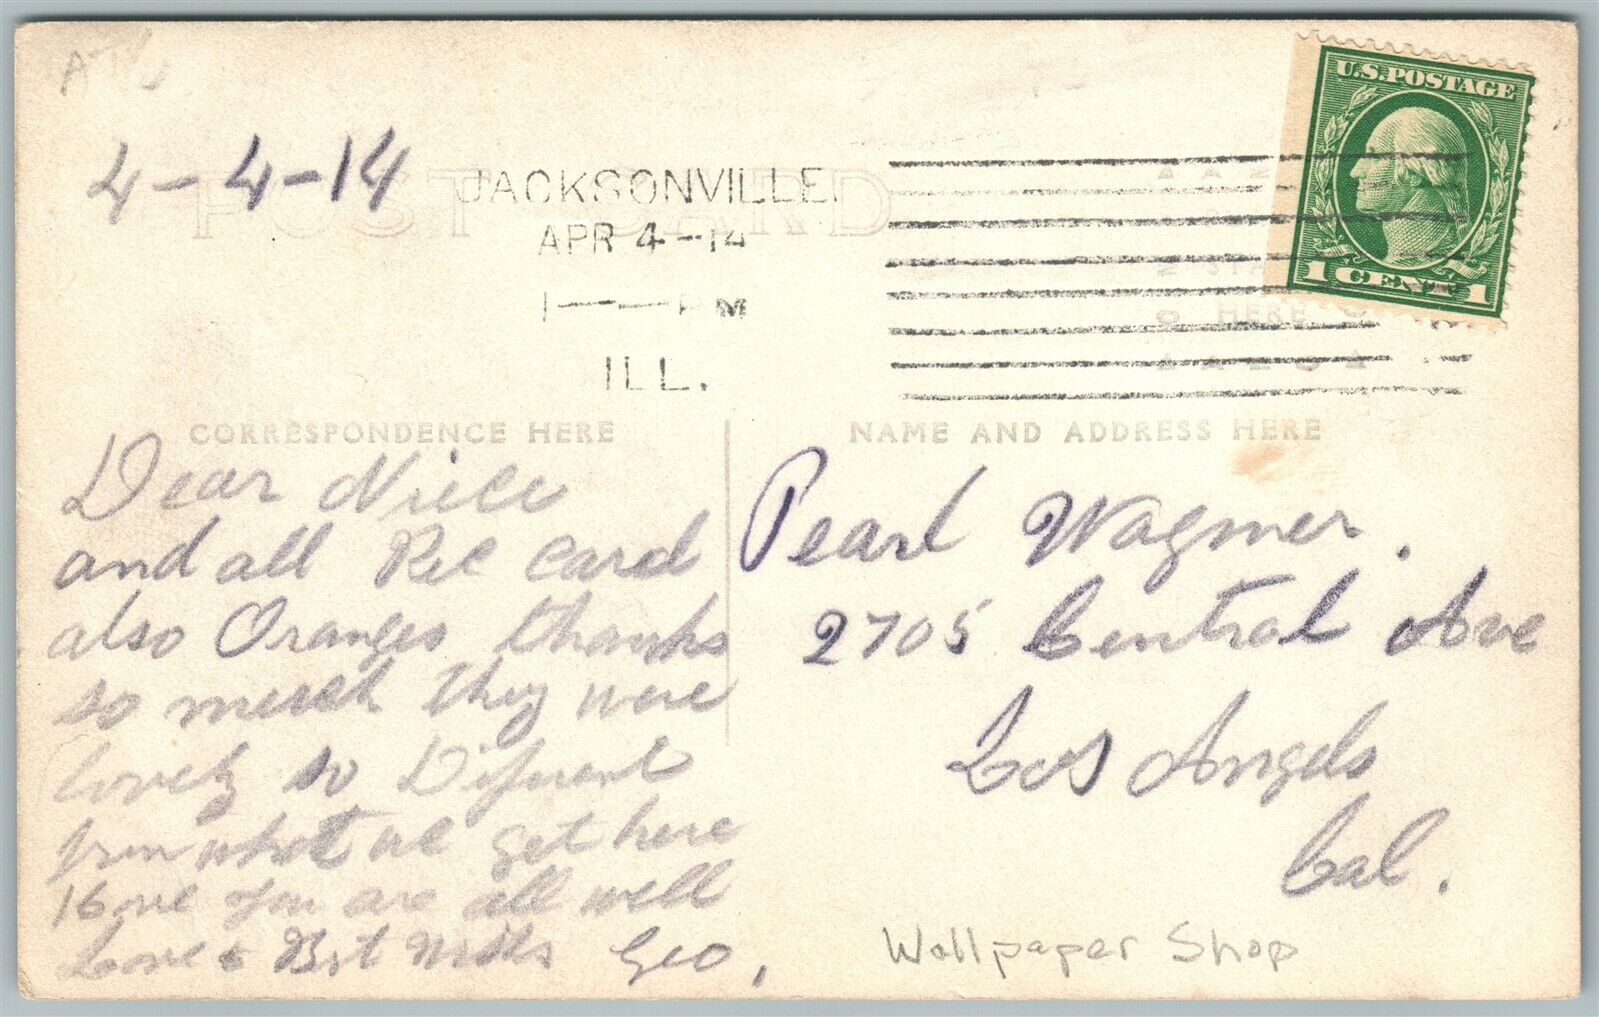 4-4-14
POST CARD
JACKSONVILLE,
APR 4-14
1 PM
ILL.
U.S. POSTAGE
1 CENT 1
HERE
CORRESPONDENCE HERE
NAME AND ADDRESS HERE
Dear Niece
and all Rec Card
also Oranges thanks
so much they were
lovely so Diferent
from what we get here
Hope you are all well
Love & Best Wishes Geo,
Pearl Wagner.
2705 Central Ave
Los Angels
Cal.
Wallpaper Shop